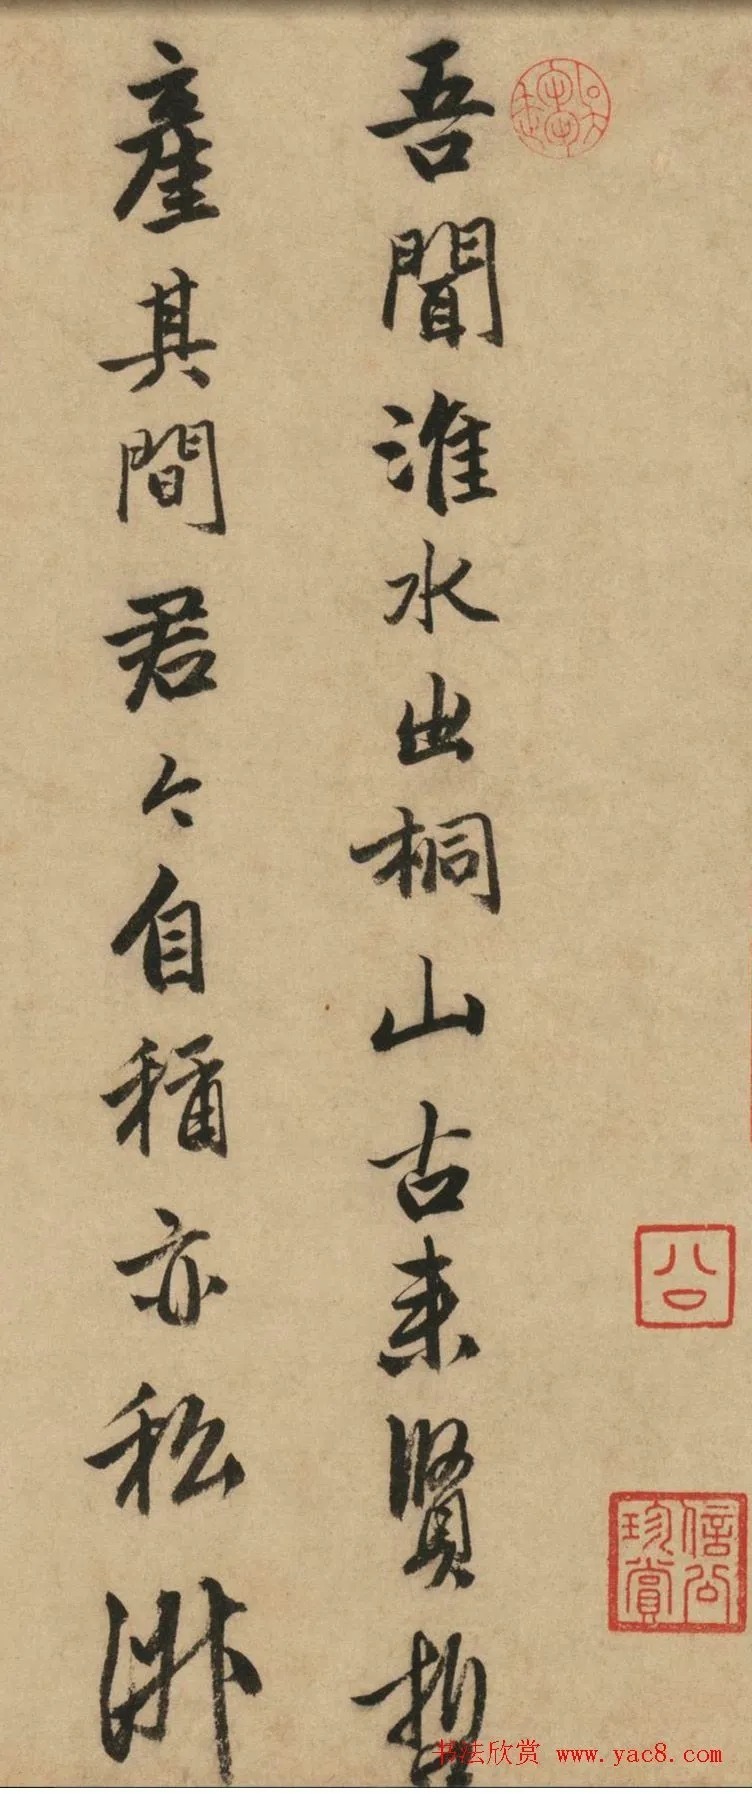 吾聞淮水出桐山古来賢哲
產其間君今自稱亦私淑
㕣
信公珍賞
书法欣赏 www.yac8.com